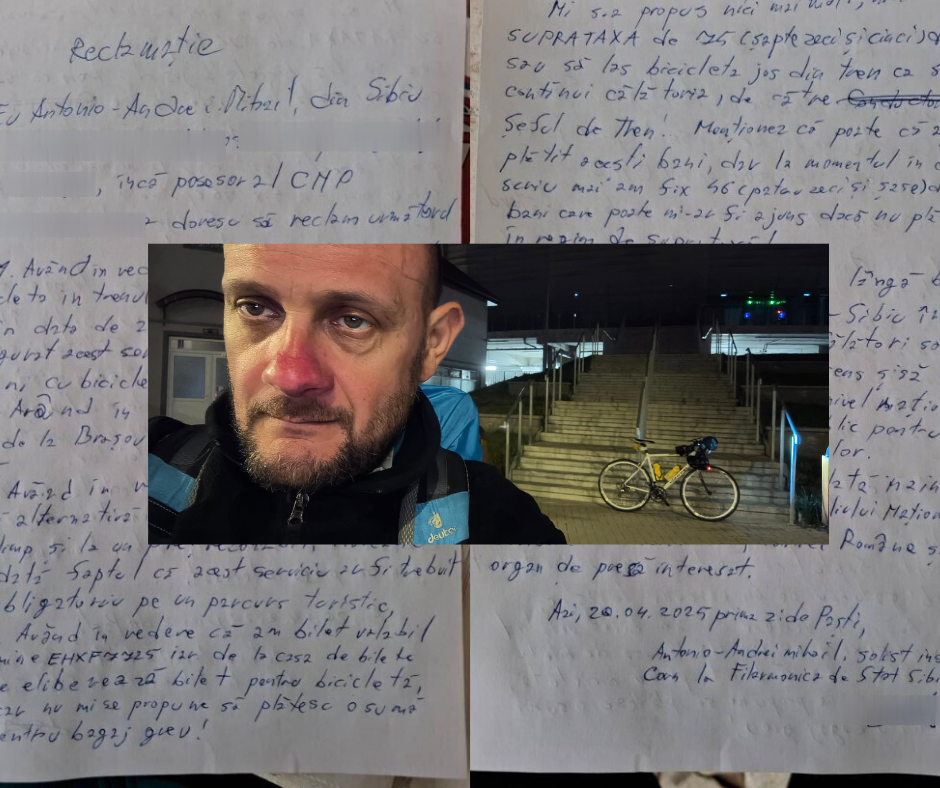 Reclamație
Antonio-Andrei Mihail, din Sibiu
, încă posesor al CMP
doresc să reclam următorul
1. Având în vec
clete în trenul
în data de 2
gurat acest ser
ni cu biciclet
Având în
de la Brașov
Având în v
alternativă
timp și la un preț
dată faptul că acest serviciu ar fi trebuit
obligatoriu pe un parcurs turistic,
Având în vedere că am bilet valabil
EHXF7725 iar de la casa de bilete
se eliberează bilet pentru bicicletă,
nu mi se propune să plătesc o sumă
pentru bagaj greu!
Mi s-a propus nici mai mult,
SUPRATAXA de 75 (șaptezeci și cinci) d
sau să las bicicleta jos din tren ca s
continui călătoria, de către
Șeful de Tren! Menționez că poate că a
plătit acești bani, dar la momentul în c
scriu mai am fix 46 (patruzeci și șase) d
bani care poate mi-ar fi ajuns dacă nu plă
în regim de
lângă
- Sibiu în
călători
sens și să
nivel națio
lic pentru
lor.
Națion
Române s
organ de presă interesat.
Azi, 20.04.2025 prima zi de Paști,
Antonio-Andrei Mihail, solist ins
Corn la Filarmonica de Stat Sibi
deuter